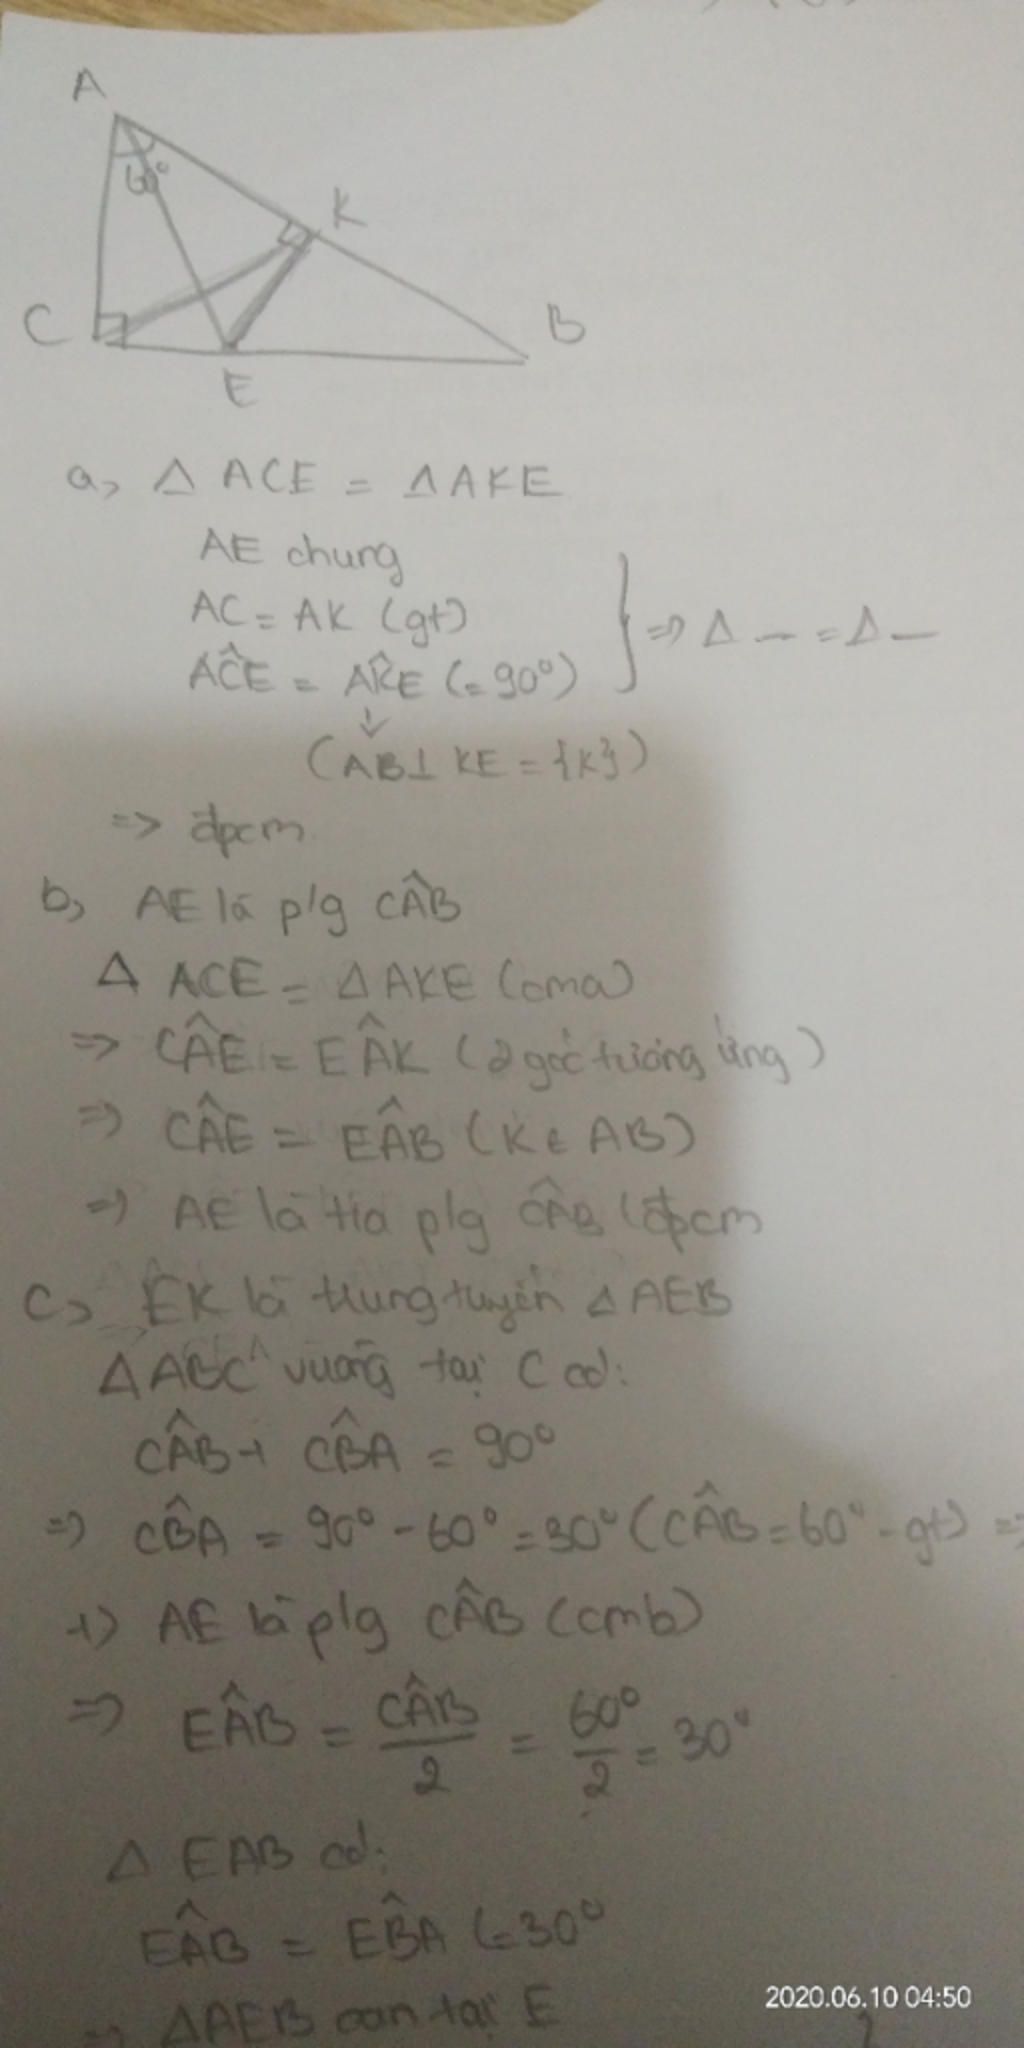 A
60°
K
C
B
E
a, Δ ACE = Δ AKE
AE chung
AC = AK (gt)
AĈE = AK̂E (= 90°)
} => Δ — = Δ —
↓
(AB ⊥ KE = {K})
=> đpcm
b, AE là p/g CÂB
Δ ACE = Δ AKE (cma)
=> CÂE = EÂK (2 góc tương ứng)
=> CÂE = EÂB (K ∈ AB)
=> AE là tia p/g CÂB (đpcm
C, EK là trung tuyến Δ AEB
Δ ABC vuông tại C có:
CÂB + CB̂A = 90°
=> CB̂A = 90° - 60° = 30° (CÂB = 60° - gt) =>
+) AE là p/g CÂB (cmb)
=> EÂB = CÂB/2 = 60°/2 = 30°
Δ EAB có:
EÂB = EB̂A (= 30°
=> ΔAEB cân tại E
2020.06.10 04:50